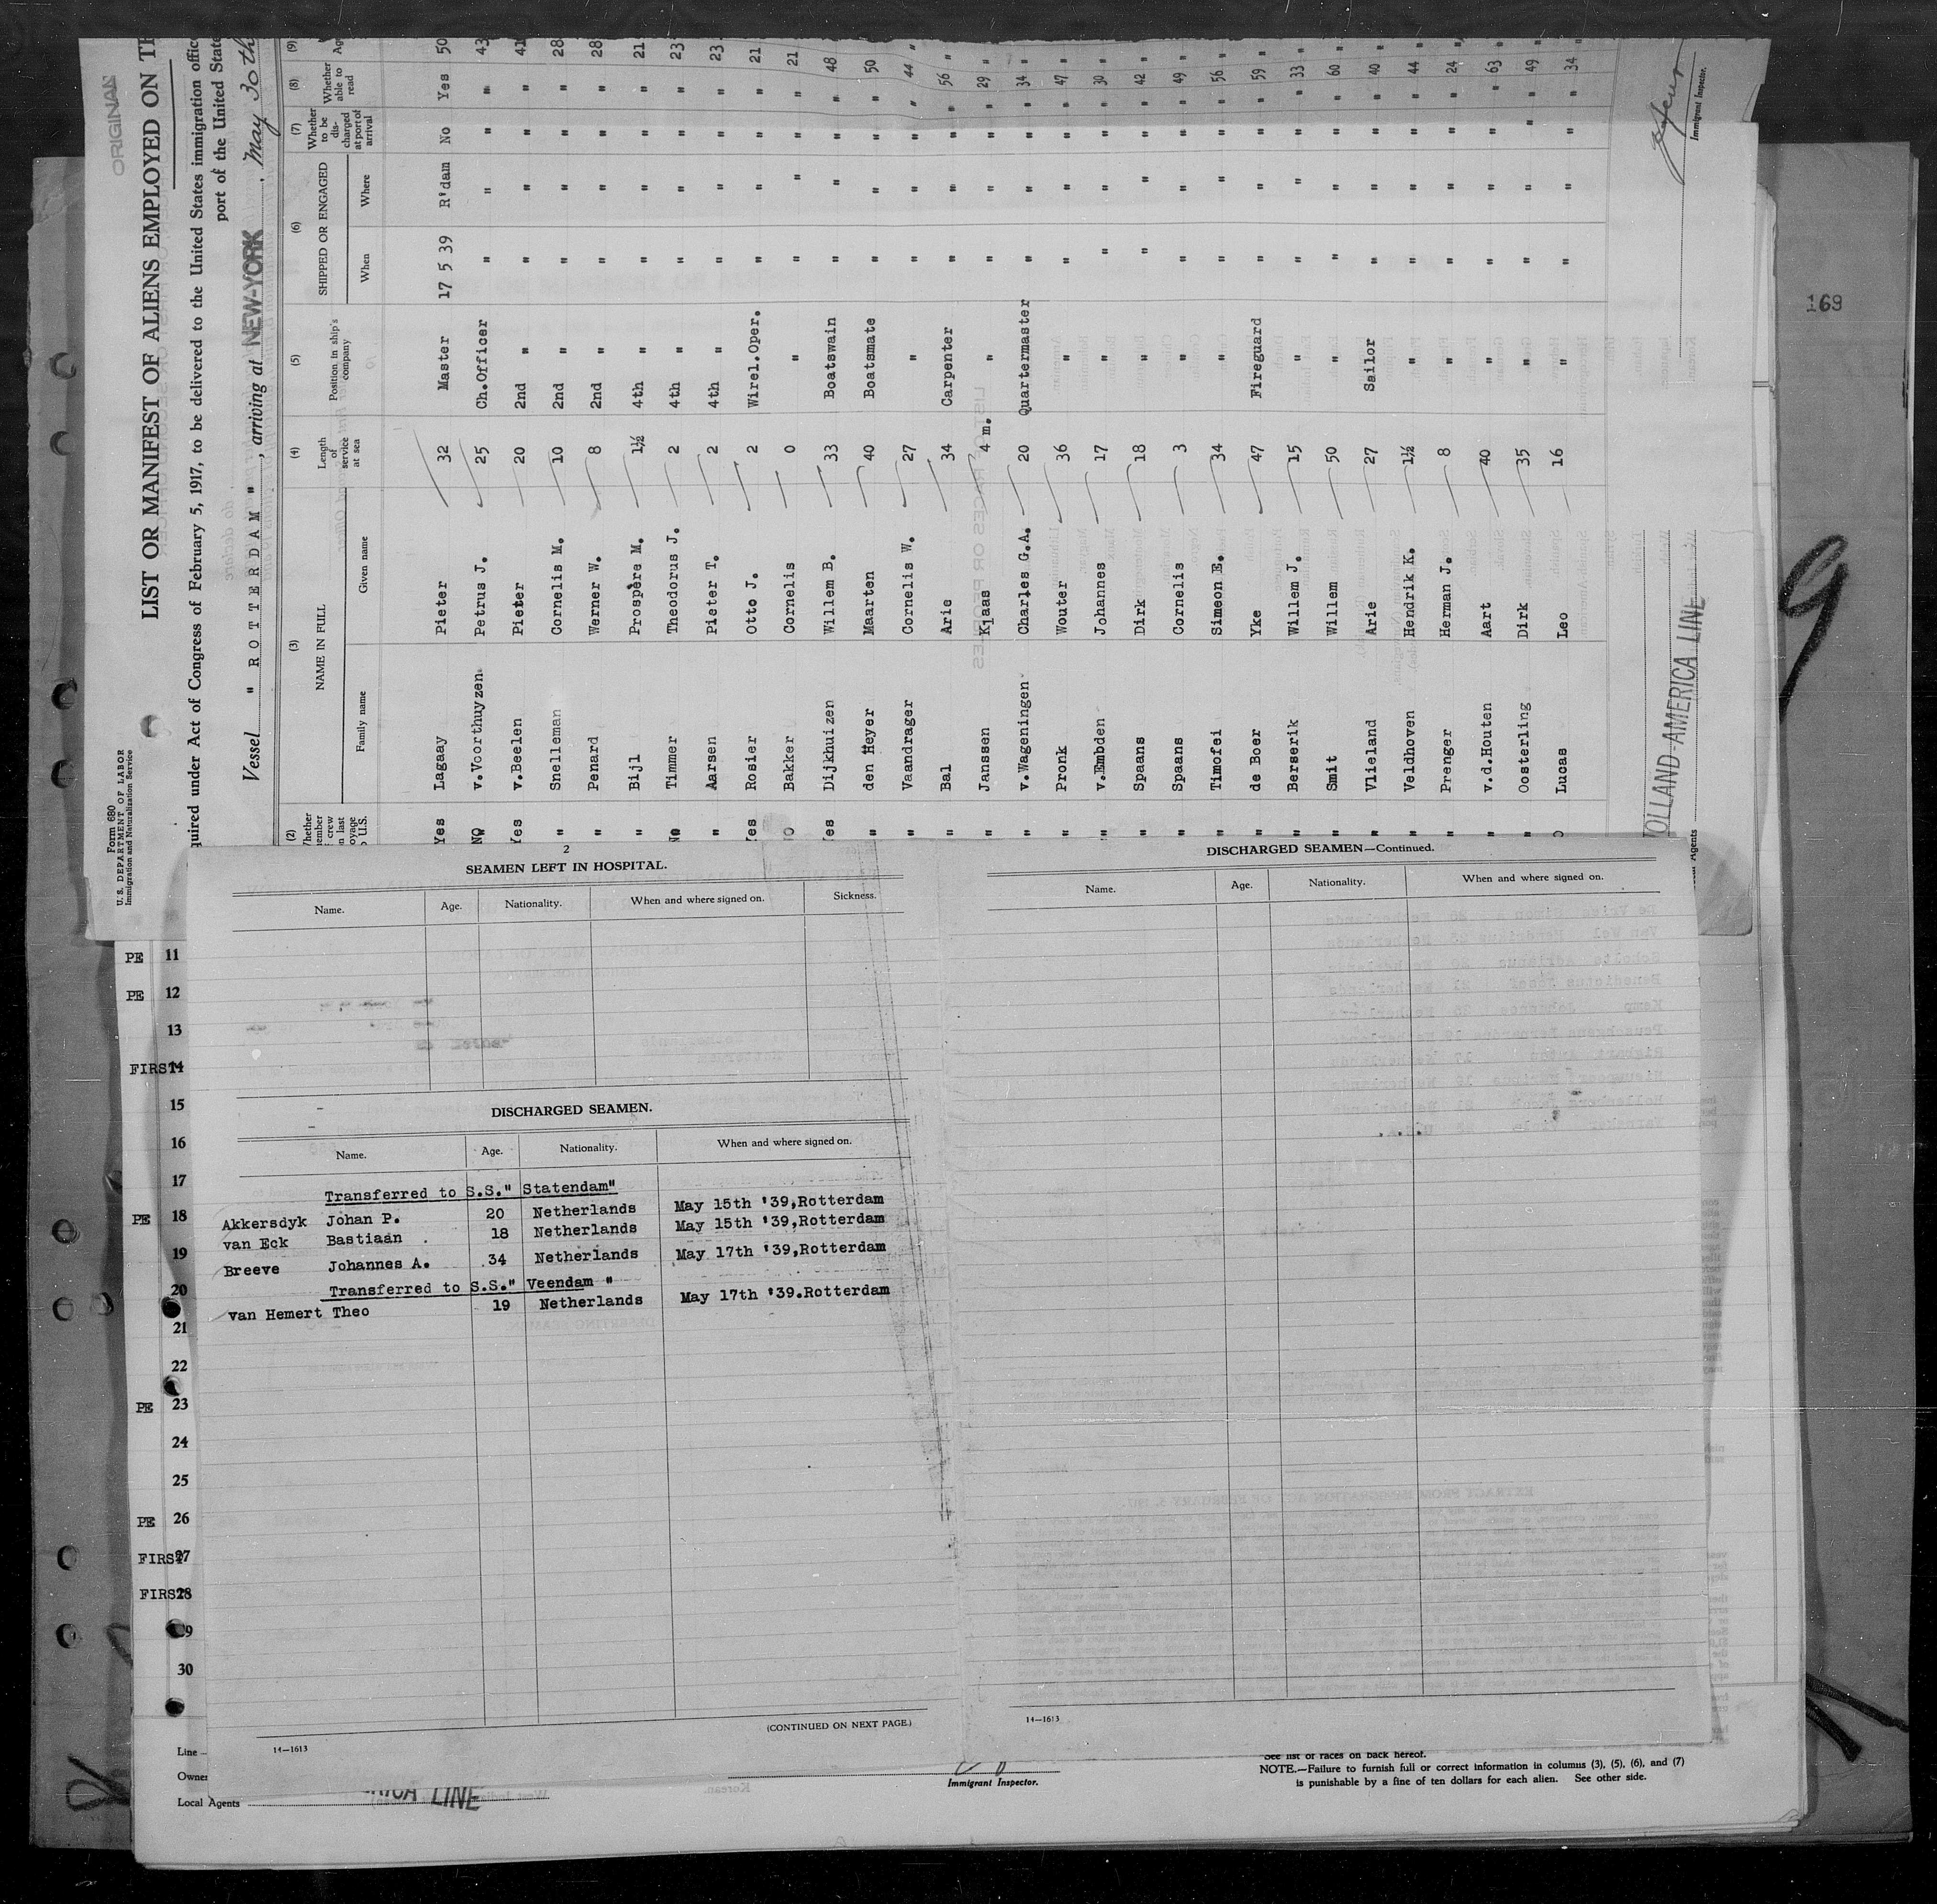 ORIGINAL
Form 680
U. S. DEPARTMENT OF LABOR
Immigration and Naturalization Service
LIST OR MANIFEST OF ALIENS EMPLOYED ON
quired under Act of Congress of February 5, 1917, to be delivered to the United States immigration
port of the United
Vessel " ROTTERDAM ", arriving at NEW-YORK, May 30th
(2) (3) (4) (5) (6) (7) (8) (9)
NAME IN FULL Length of service at sea Position in ship's company SHIPPED OR ENGAGED Whether to be dis-charged at port of arrival Whether able to read
Family name Given name When Where
Yes Lagaay Pieter 32 Master 17 5 39 R'dam No Yes 50
NO v.Voorthuyzen Petrus J. 25 Ch.Officer " " " " 43
Yes v.Beelen Pieter 20 2nd " " " " " 41
" Snelleman Cornelis M. 10 2nd " " " " " 28
" Penard Werner W. 8 2nd " " " " " 28
" Bijl Prospère M. 1½ 4th " " " " " 21
No Timmer Theodorus J. 2 4th " " " " " 23
" Aarsen Pieter T. 2 4th " " " " " 23
Yes Rosier Otto J. 2 Wirel.Oper. " " " " 21
Bakker Cornelis 0 " " " " " 21
Yes Dijkhuizen Willem B. 33 Boatswain " " " " 48
" den Heyer Maarten 40 Boatsmate " " " " 50
" Vaandrager Cornelis W. 27 " " " " " 44 "
" Bal Arie 34 Carpenter " " " " 56 "
" Janssen Klaas 4 m. " " " " " 29 "
" v.Wageningen Charles G.A. 20 Quartermaster " " " " 34 "
" Pronk Wouter 36 " " " " " 47 "
" v.Embden Johannes 17 " " " " " 30 "
" Spaans Dirk 18 " " " " " 42 "
" Spaans Cornelis 3 " " " " " 49 "
" Timofei Simeon E. 34 " " " " " 56 "
" de Boer Yke 47 Fireguard " " " " 59 "
" Berserik Willem J. 15 " " " " " 33 "
" Smit Willem 50 " " " " " 60 "
" Vlieland Arie 27 Sailor " " " " 40 "
" Veldhoven Hendrik K. 1½ " " " " " 44 "
" Prenger Herman J. 8 " " " " " 24 "
" v.d.Houten Aart 40 " " " " " 63 "
" Oosterling Dirk 35 " " " " " 49 "
Lucas Leo 16 " " " " " 34 "
OLLAND-AMERICA LINE
Agents
Immigrant Inspector.
169
9
2
SEAMEN LEFT IN HOSPITAL.
Name. Age. Nationality. When and where signed on. Sickness.
DISCHARGED SEAMEN.
Name. Age. Nationality. When and where signed on.
Transferred to S.S." Statendam"
Akkersdyk Johan P. 20 Netherlands May 15th '39,Rotterdam
van Eck Bastiaan . 18 Netherlands May 15th '39,Rotterdam
Breeve Johannes A. 34 Netherlands May 17th '39,Rotterdam
Transferred to S.S." Veendam "
van Hemert Theo 19 Netherlands May 17th '39.Rotterdam
(CONTINUED ON NEXT PAGE.)
14—1613
DISCHARGED SEAMEN—Continued.
Name. Age. Nationality. When and where signed on.
14—1613
PE 11
PE 12
13
FIRST 14
15
16
17
PE 18
19
20
21
22
PE 23
24
25
PE 26
FIRST 27
FIRST 28
29
30
Line
Owner
Local Agents
LINE
Immigrant Inspector.
See list of races on back hereof.
NOTE.—Failure to furnish full or correct information in columns (3), (5), (6), and (7)
is punishable by a fine of ten dollars for each alien. See other side.